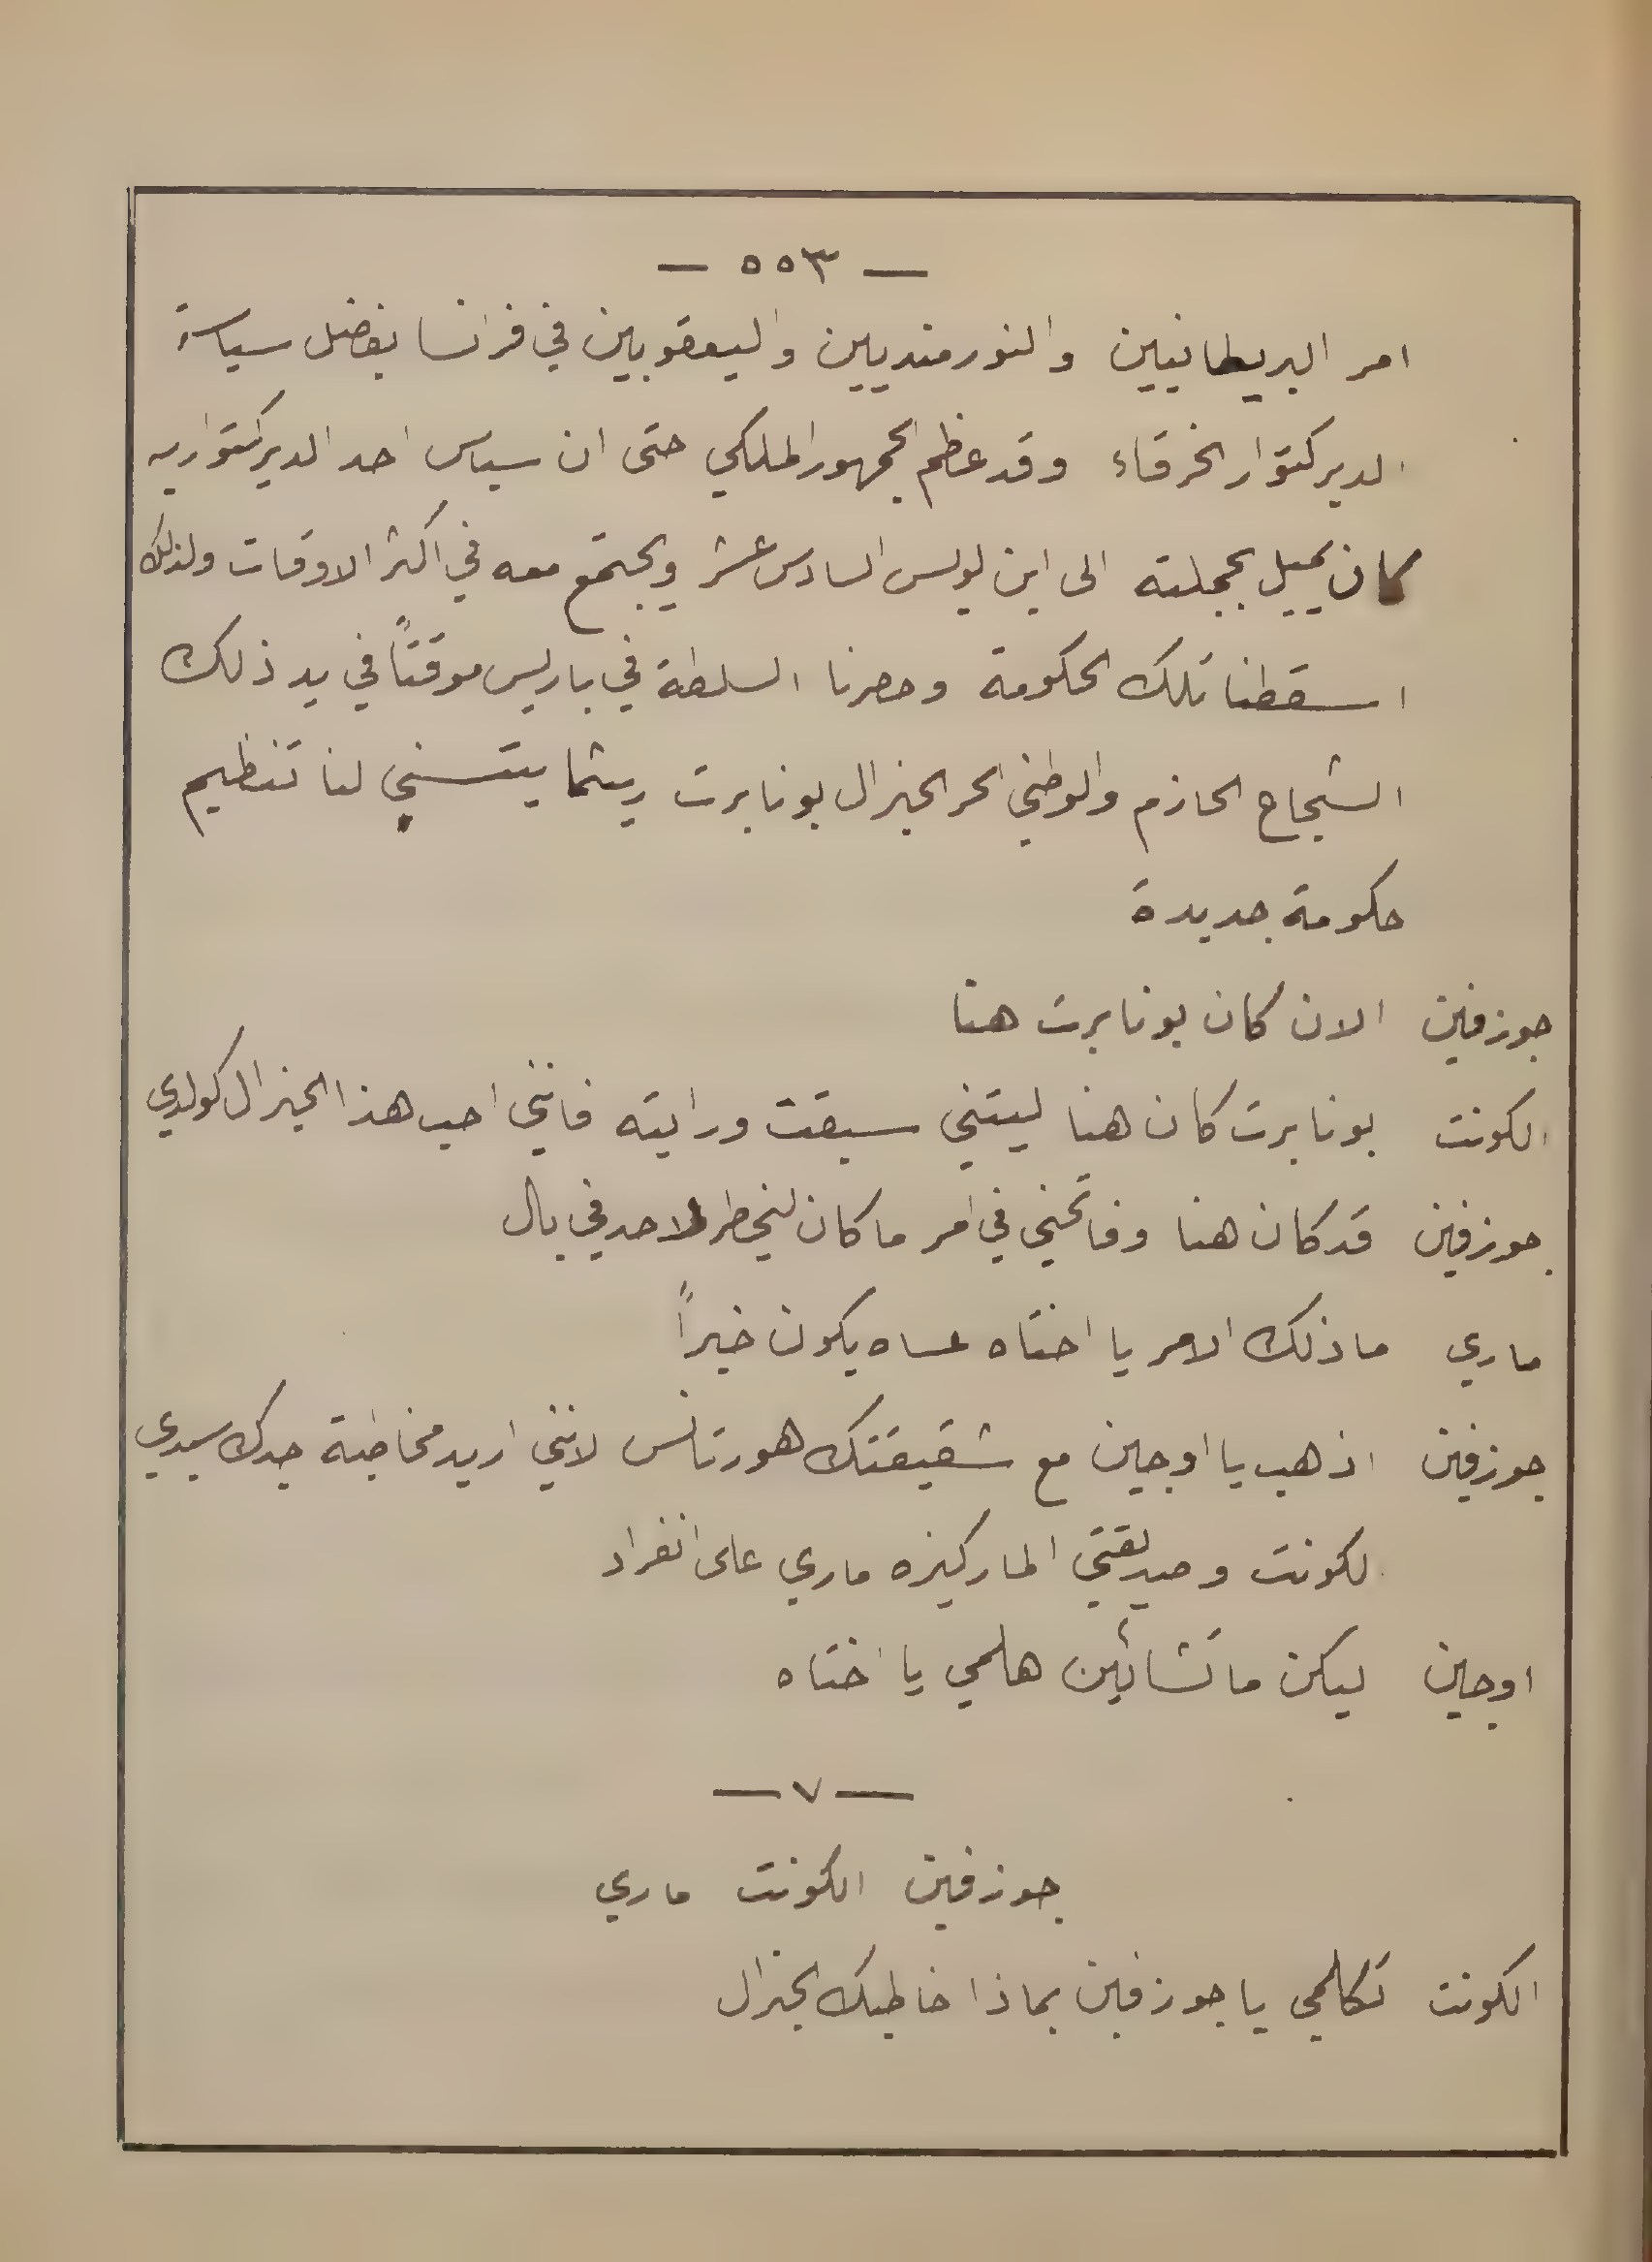 — ٥٥٣ —
امر البريطانيين والنورمنديين واليعقوبيين في فرانسا بفضل سياسة
الديركتوار الخرقاء وقد عظم الجمهور الملكي حتى ان سياس احد الديركتواريه
كان يميل بجملته الى ابن لويس السادس عشر ويجتمع معه في اكثر الاوقات ولذلك
اسقطنا تلك الحكومة وحصرنا السلطة في باريس موقتاً في يد ذلك
الشجاع الحازم والوطني الحر الجنرال بونابرت ريثما يتسنى لنا تنظيم
حكومة جديدة
جوزفين الان كان بونابرت هنا
الكونت بونابرت كان هنا ليتني سبقت ورايته فانني احب هذا الجنرال كولدي
جوزفين قد كان هنا وفاتحني في امر ما كان ليخطر لاحد في بال
ماري ما ذلك الامر يا اختاه عساه يكون خيراً
جوزفين اذهب يا اوجين مع شقيقتك هورتانس لانني اريد مخاطبة جدك سيدي
الكونت وصديقتي الماركيزه ماري على انفراد
اوجين ليكن ما تشائين هلمي يا اختاه
— ٧ —
جوزفين الكونت ماري
الكونت تكلمي يا جوزفين بماذا خاطبك الجنرال